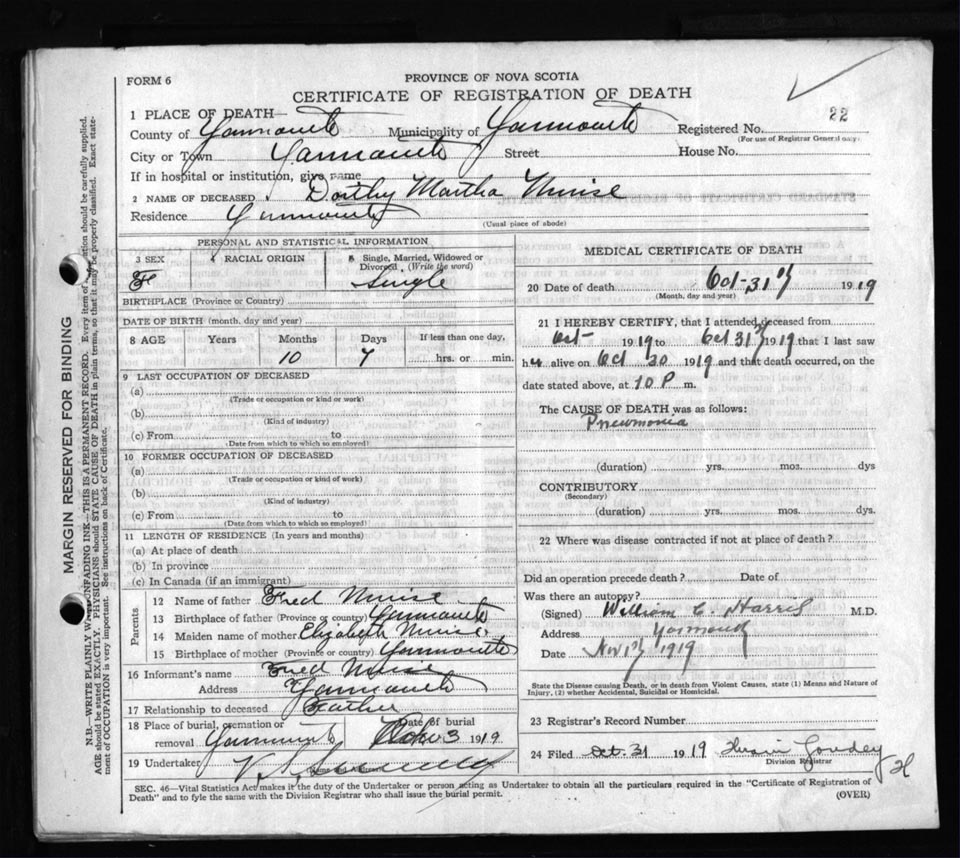 FORM 6
PROVINCE OF NOVA SCOTIA
CERTIFICATE OF REGISTRATION OF DEATH
22
1 PLACE OF DEATH—
County of Yarmouth Municipality of Yarmouth Registered No.
(For use of Registrar General only.)
City or Town Yarmouth Street House No.
If in hospital or institution, give name
2 NAME OF DECEASED Dorthy Martha Muise
Residence Yarmouth
(Usual place of abode)
PERSONAL AND STATISTICAL INFORMATION
3 SEX 4 RACIAL ORIGIN 5 Single, Married, Widowed or Divorced (Write the word)
F Single
BIRTHPLACE (Province or Country)
DATE OF BIRTH (month, day and year)
8 AGE Years Months Days If less than one day,
10 7 hrs. or min.
9 LAST OCCUPATION OF DECEASED
(a)
(Trade or occupation or kind of work)
(b)
(Kind of industry)
(c) From to
(Date from which to which so employed)
10 FORMER OCCUPATION OF DECEASED
(a)
(Trade or occupation or kind of work)
(b)
(Kind of industry)
(c) From to
(Date from which to which so employed)
11 LENGTH OF RESIDENCE (In years and months)
(a) At place of death
(b) In province
(c) In Canada (if an immigrant)
Parents
12 Name of father Fred Muise
13 Birthplace of father (Province or country) Yarmouth
14 Maiden name of mother Elizabeth Muise
15 Birthplace of mother (Province or country) Yarmouth
16 Informant's name Fred Muise
Address Yarmouth
17 Relationship to deceased Father
18 Place of burial, cremation or removal Yarmouth Date of burial Nov 3 1919
19 Undertaker
MEDICAL CERTIFICATE OF DEATH
20 Date of death Oct-31st 1919
(Month, day and year)
21 I HEREBY CERTIFY, that I attended deceased from
Oct- 1919 to Oct 31st 1919 that I last saw
h alive on Oct 30 1919 and that death occurred, on the
date stated above, at 10 P m.
The CAUSE OF DEATH was as follows:
Pneumonia
(duration) yrs. mos. dys
CONTRIBUTORY
(Secondary)
(duration) yrs. mos. dys.
22 Where was disease contracted if not at place of death?
Did an operation precede death? Date of
Was there an autopsy?
(Signed) William C. Harris M.D.
Address Yarmouth
Date Nov 1st 1919
State the Disease causing Death, or in death from Violent Causes, state (1) Means and Nature of
Injury, (2) whether Accidental, Suicidal or Homicidal.
23 Registrar's Record Number
24 Filed Oct. 31 1919
Division Registrar
SEC. 46—Vital Statistics Act makes it the duty of the Undertaker or person acting as Undertaker to obtain all the particulars required in the "Certificate of Registration of
Death" and to fyle the same with the Division Registrar who shall issue the burial permit.
(OVER)
MARGIN RESERVED FOR BINDING
N.B.—WRITE PLAINLY WITH UNFADING INK—THIS IS A PERMANENT RECORD. Every item of information should be carefully supplied.
AGE should be stated EXACTLY. PHYSICIANS should STATE CAUSE OF DEATH in plain terms, so that it may be properly classified. Exact statement of OCCUPATION is very important. See instructions on back of Certificate.